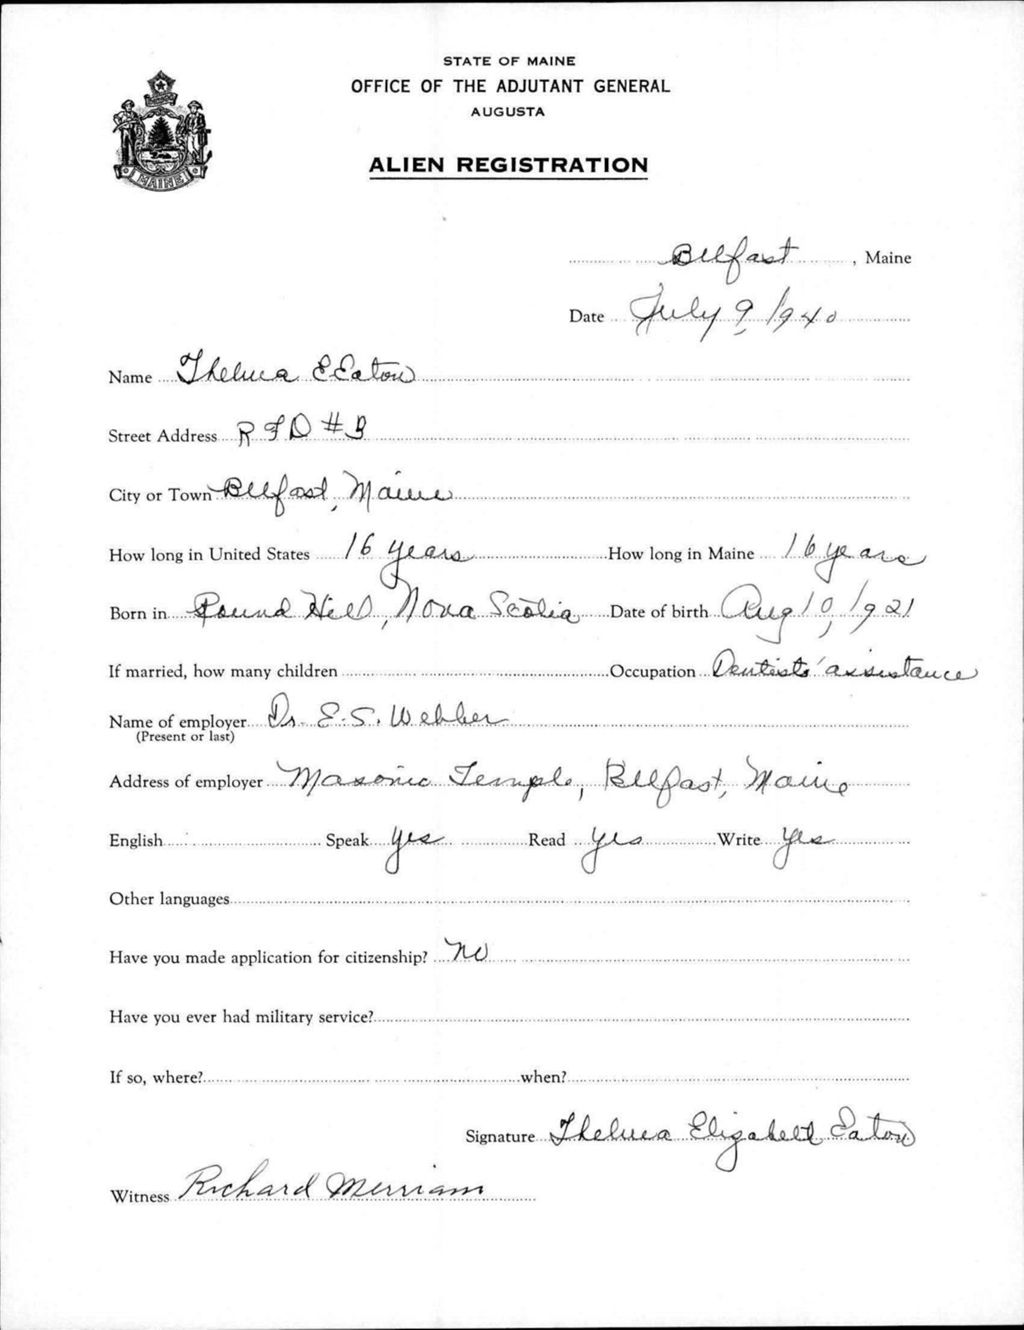 STATE OF MAINE
OFFICE OF THE ADJUTANT GENERAL
AUGUSTA
ALIEN REGISTRATION
MAINE
Belfast, Maine
Date July 9, 1940
Name Thelma E. Eaton
Street Address R F D # 3
City or Town Belfast, Maine
How long in United States 16 years How long in Maine 16 years
Born in Round Hill, Nova Scotia Date of birth Aug 10, 1921
If married, how many children Occupation Dentists' assistance
Name of employer Dr. E. S. Webber
(Present or last)
Address of employer Masonic Temple, Belfast, Maine
English Speak yes Read yes Write yes
Other languages
Have you made application for citizenship? No
Have you ever had military service?
If so, where? when?
Signature Thelma Elizabeth Eaton
Witness Richard Merriam